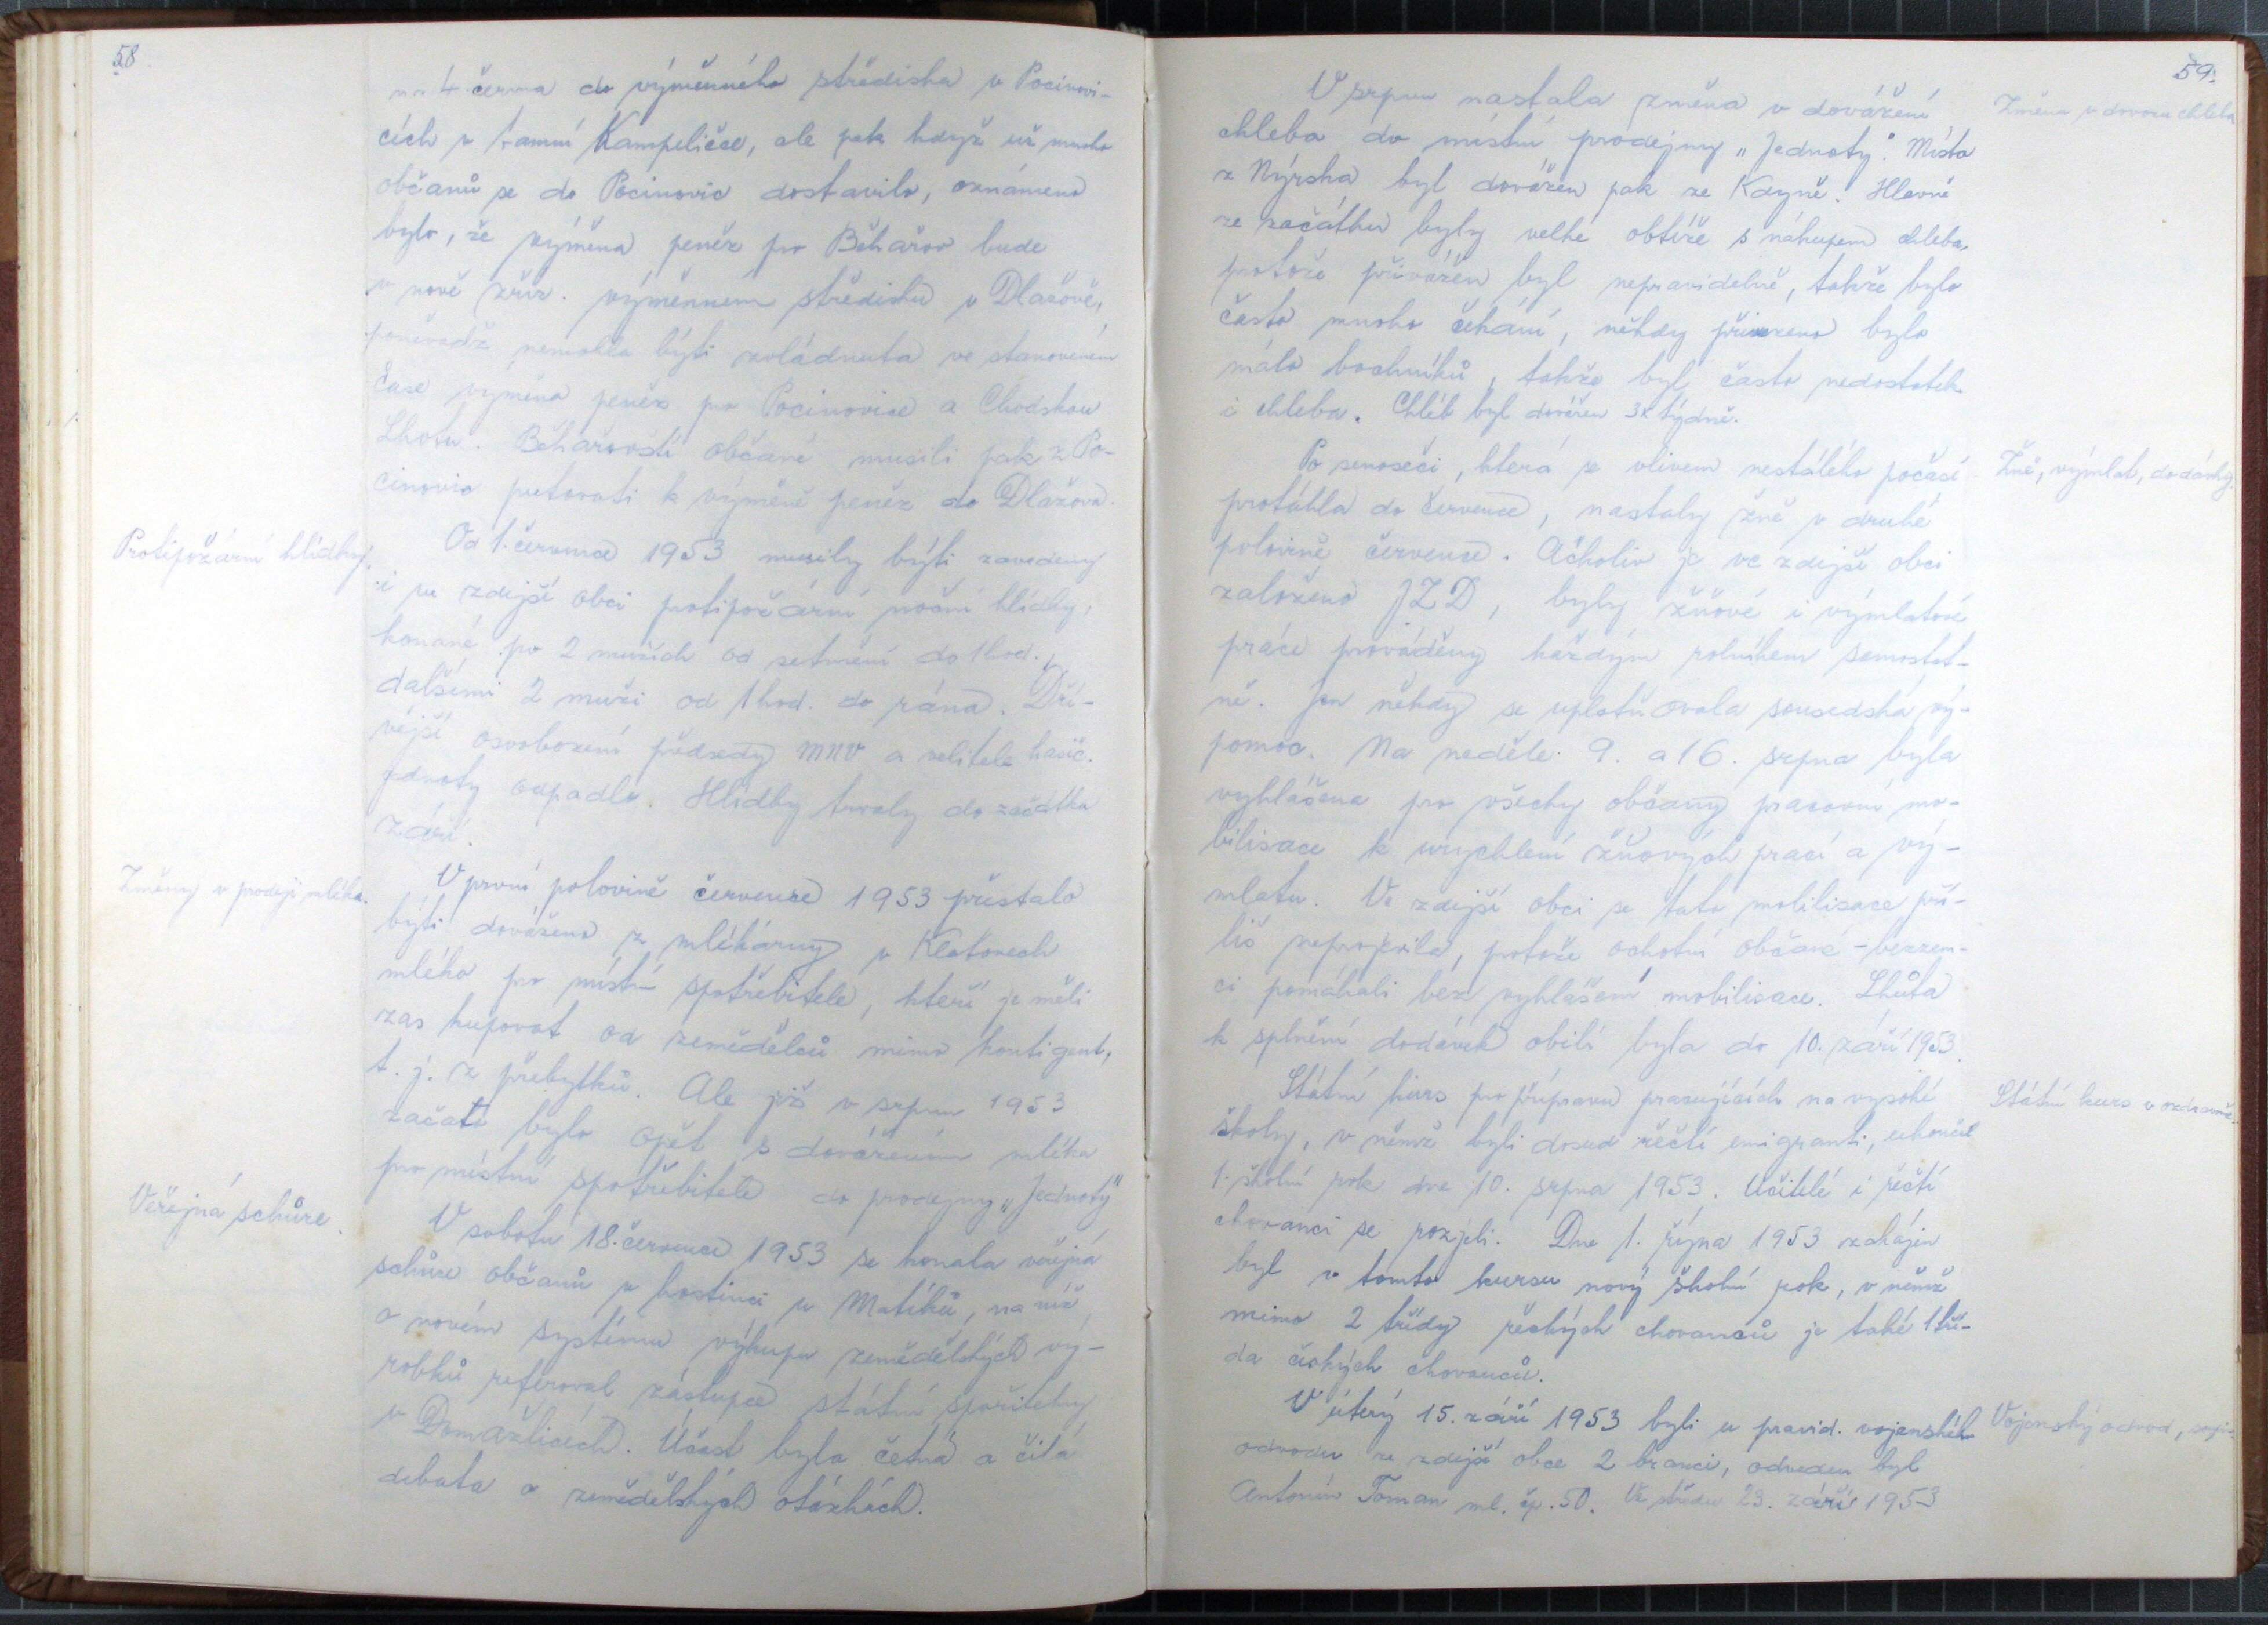 58
na 4. června do výměnného střediska v Pocinovi-
cích v tamní Kampeličce, ale pak když už mnoho
občanů se do Pocinovic dostavilo, oznámeno
bylo, že výměna peněz pro Běhařov bude
v nově zříz. výměnném středisku v Dlažově,
poněvadž nemohla býti zvládnuta ve stanoveném
čase výměna peněz pro Pocinovice a Chodskou
Lhotu. Běhařovští občané musili pak z Po-
cinovic putovati k výměně peněz do Dlažova.
Protipožární hlídky.
Od 1. července 1953 musily býti zavedeny
i ve zdejší obci protipožární noční hlídky,
konané po 2 mužích od setmění do 1 hod.,
dalšími 2 muži od 1 hod. do rána. Dří-
vější osvobození předsedy MNV a velitele hasič.
jednoty odpadlo. Hlídky trvaly do začátku
září.
Změny v prodeji mléka.
V první polovině července 1953 přestalo
býti dováženo z mlékárny v Klatovech
mléko pro místní spotřebitele, kteří je měli
zas kupovat od zemědělců mimo kontigent,
t. j. z přebytků. Ale již v srpnu 1953
začato bylo opět s dovážením mléka
pro místní spotřebitele do prodejny „Jednoty"
Veřejná schůze.
V sobotu 18. července 1953 se konala veřejná
schůze občanů v hostinci u Matíků, na níž
o novém systému výkupu zemědělských vý-
robků referoval zástupce státní spořitelny
v Domažlicích. Účast byla četná a čilá
debata o zemědělských otázkách.
59.
Změna v dovozu chleba
V srpnu nastala změna v dovážení
chleba do místní prodejny „Jednoty". Místo
z Nýrska byl dovážen pak ze Kdyně. Hlavně
ze začátku byly velké obtíže s nákupem chleba,
protože přivážen byl nepravidelně, takže bylo
často mnoho čekání, někdy přivezeno bylo
málo bochníků, takže byl často nedostatek
i chleba. Chléb byl dovážen 3x týdně.
Žně, výmlat, dodávky.
Po senoseči, která se vlivem nestálého počasí
protáhla do července, nastaly žně v druhé
polovině července. Ačkoliv je ve zdejší obci
založeno JZD, byly žňové i výmlatové
práce prováděny každým rolníkem samostat-
ně. Jen někdy se uplatňovala sousedská vý-
pomoc. Na neděle 9. a 16. srpna byla
vyhlášena pro všechy občany pracovní mo-
bilisace k urychlení žňových prací a vý-
mlatu. Ve zdejší obci se tato mobilisace pří-
liš neprojevila, protože ochotní občané - bezzem-
ci pomáhali bez vyhlášení mobilisace. Lhůta
k splnění dodávek obilí byla do 10. září 1953.
Státní kurs v ozdravovně
Státní kurs pro přípravu pracujících na vysoké
školy, v němž byli dosud řečtí emigranti, ukončil
1. školní rok dne 10. srpna 1953. Učitelé i řečtí
chovanci se rozjeli. Dne 1. října 1953 zahájen
byl v tomto kursu nový školní rok, v němž
mimo 2 třídy řeckých chovanců je také 1 tří-
da českých chovanců.
Vojenský odvod,
V úterý 15. září 1953 byli u pravid. vojenského
odvodu ze zdejší obce 2 branci, odveden byl
Antonín Toman ml. čp. 50. Ve středu 23. září 1953